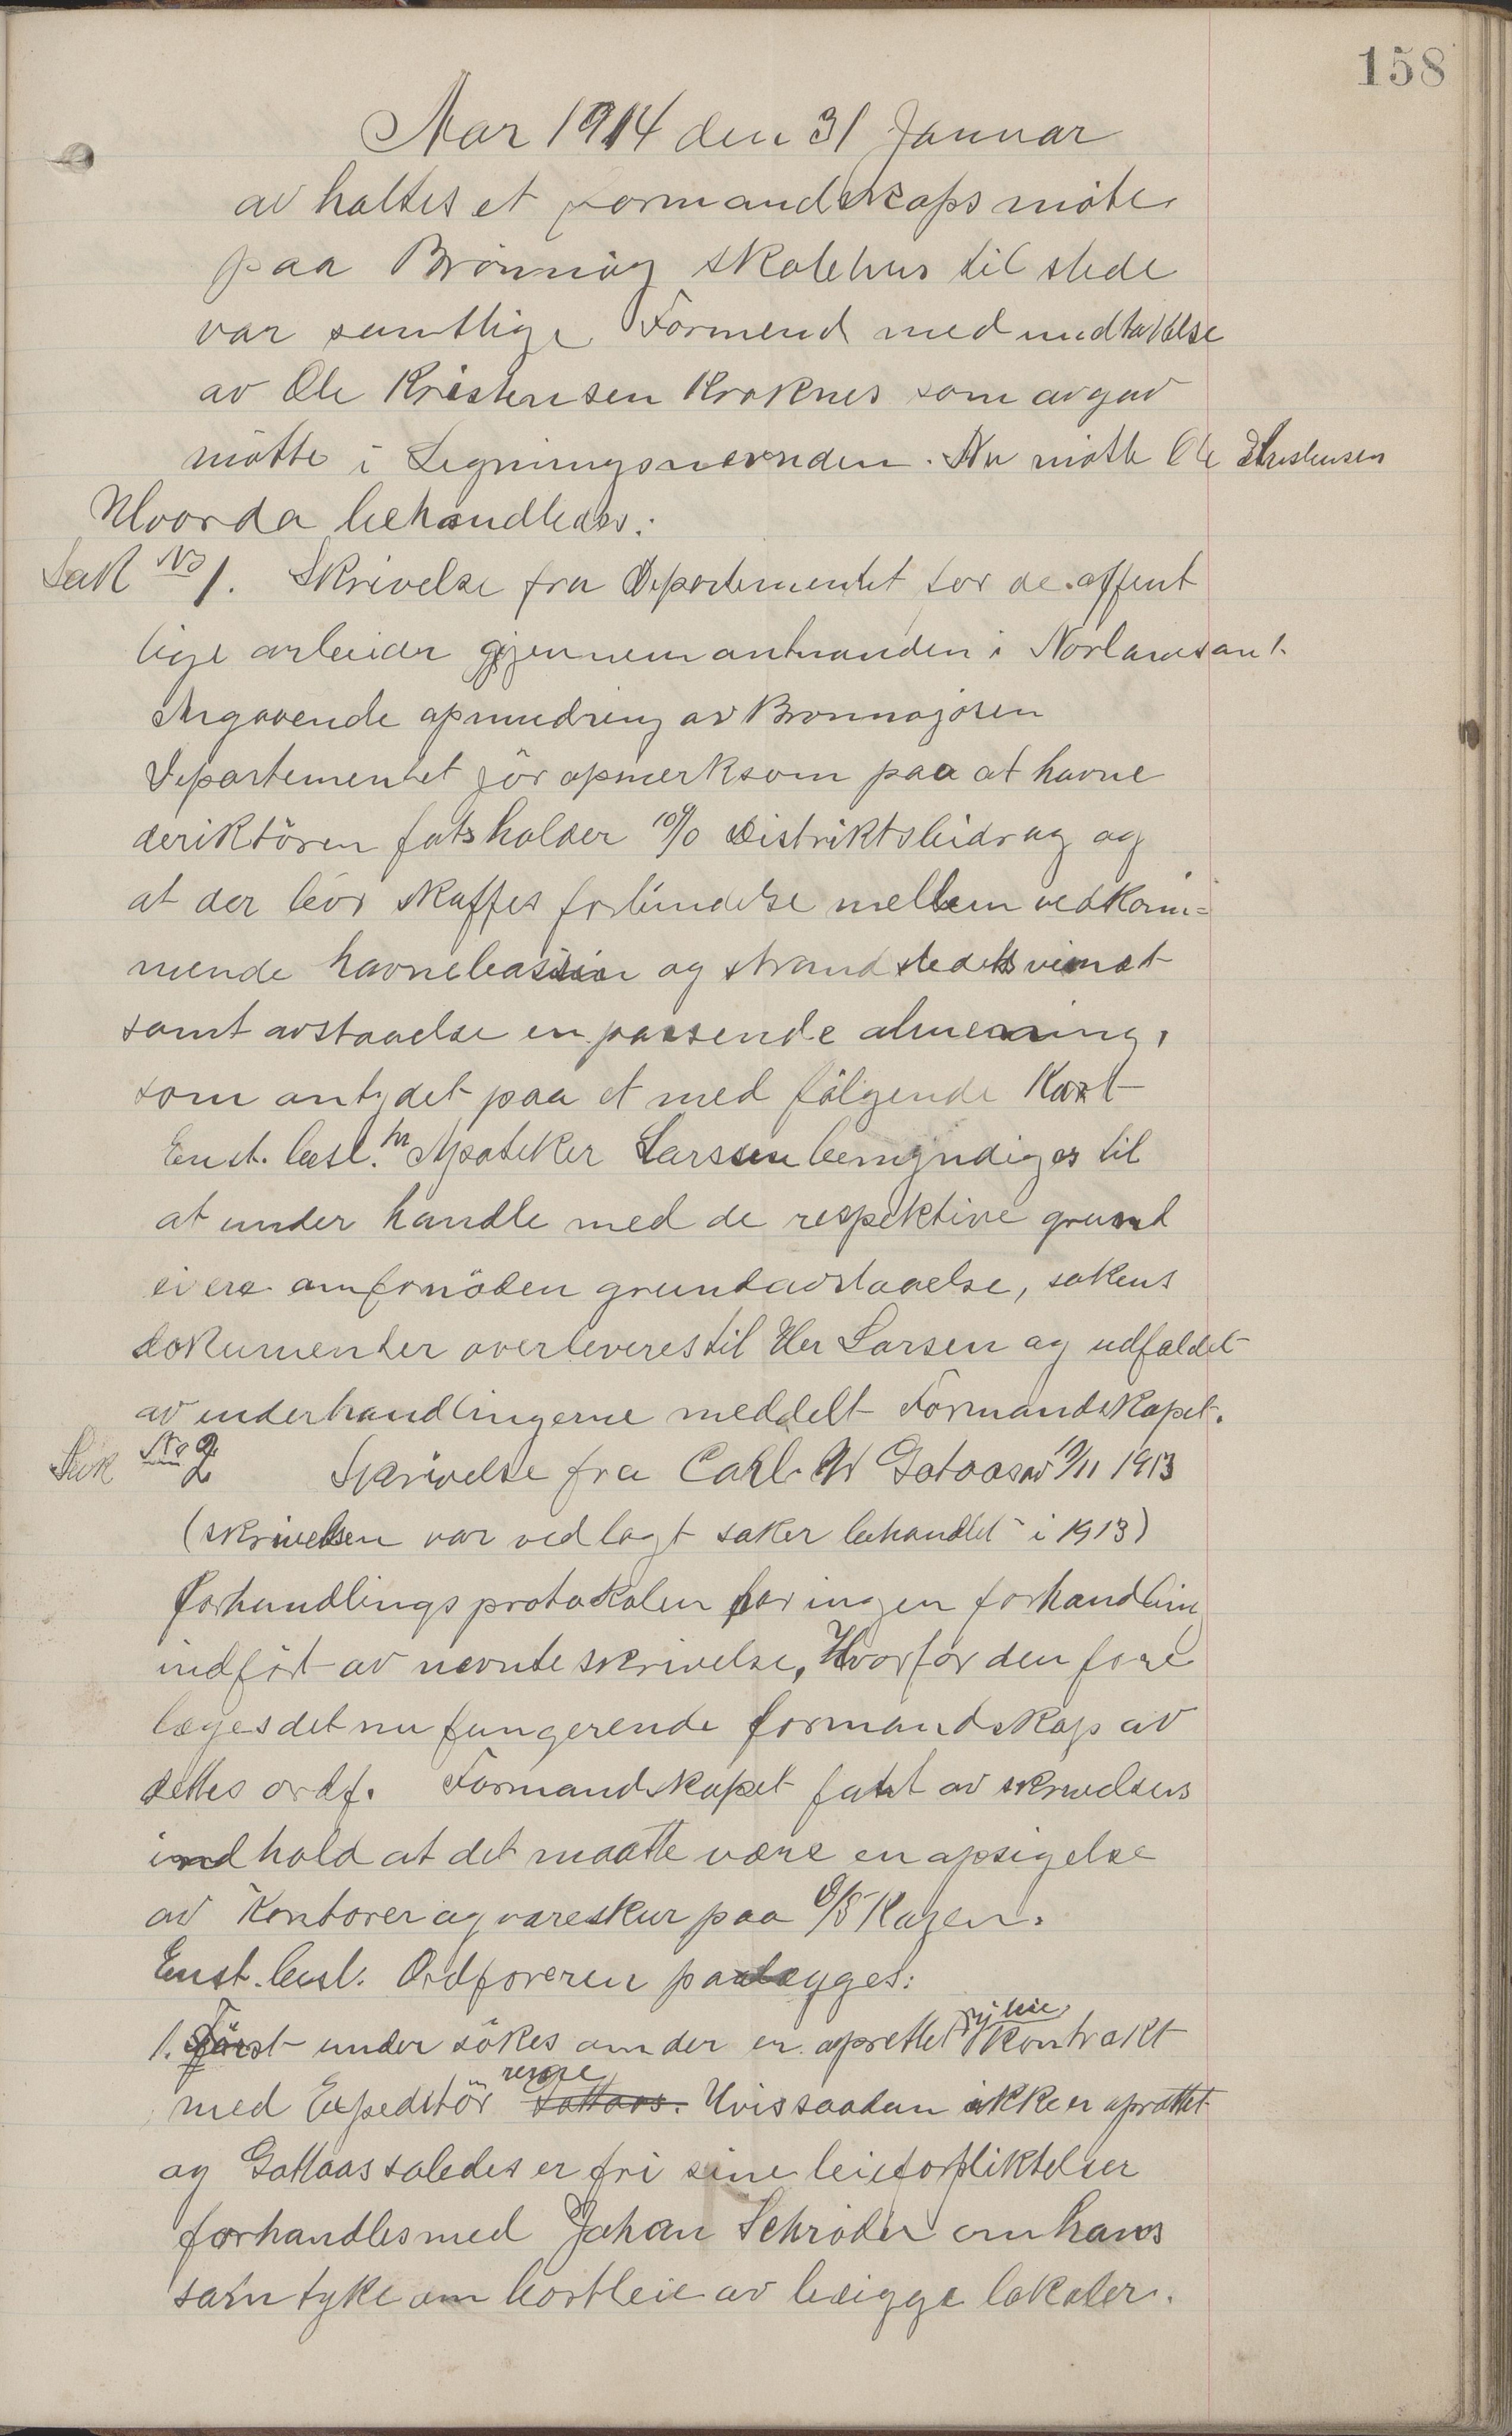 158
Aar 1914 den 31 Januar
av holtes et formandskaps möte
paa Brönnöy skolehus til stede
var samtlige Formend med undtakelse
av Ole Kristensen Kroknes som avgav
mötte i Ligningsnevnden. Nu mötte Ole Kristensen
Hvorda behandledes:
Sak No 1. Skrivelse fra Departementet for de offent
lige arbeider gjennem amtmanden i Norlands amt.
Angaaende opmudring av Brönnöjosen
Departementet jör opmerksom paa at havne
deriktören fatsholder 10% Distriktsbidrag og
at der bör skaffes forbindelse mellem vedkom=
mende havnebassin og strandstedets veinæt
samt avstaaelse en passende almenning,
som antydet paa et med fölgende Kart
Enst. besl. hr Apoteker Larssen bemyndiges til
at under handle med de respektive grund
eiere om fornöden grundavstaaelse, sakens
dokumenter overleveres til Her Larsen og udfaldet
av underhandlingerne meddelt Formandskapet.
Sak No 2 Skrivelse fra Carl. W Gotaas av 10/11 1913
(skrivelsen var vedlagt saker behandlet i 1913)
Forhandlingsprotokolen har ingen forhandling
indfört av nevnte skrivelse, Hvorfor den fore
læges det nu fungerende formandskap av
dettes ordf. Formandskapet fant av skrivelsens
indhold at det maatte være en opsigelse
av Kontorer og vareskur paa D/S Kajen.
Enst. besl. Ordföreren paalægges:
1. Först under sökes om der er oprettet ny leie Kontrakt
med Expeditör Gottaas. Hvis saadan ikke er oprettet
og Gottaas saledes er fri sine leieforpliktelser
forhandles med Johan Schröder om hans
samtyke om bortleie av beigge lokaler.